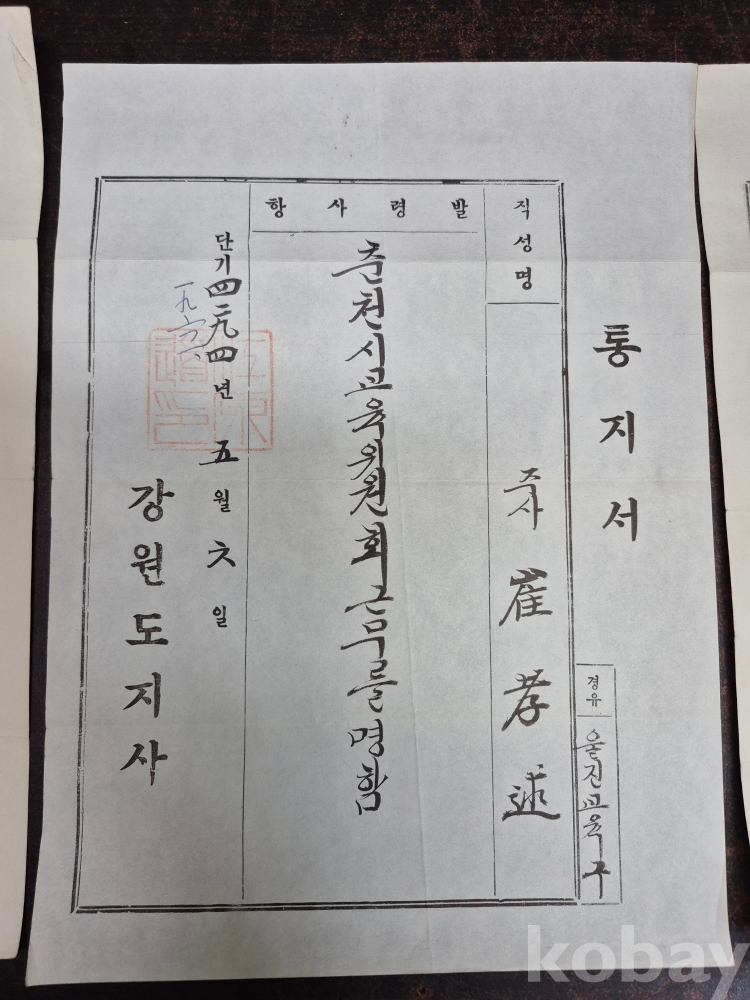 통지서
경유 울진교육구
직성명
주사 崔孝述
발령사항
춘천시교육위원회근무를명함
단기四二九四년 五월 六일
一九六一
강원도지사
kobay